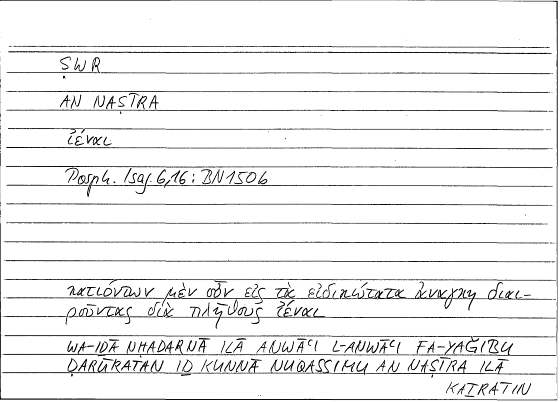 ṢWR
AN NAṢĪRA
ἰέναι
Porph. Isag. 6,16: BN150b
κατιόντων μὲν οὖν εἰς τὰ εἰδικώτατα ἀνάγκη διαι-
ροῦντας διὰ πλήθους ἰέναι
WA-IḎĀ NḤADARNĀ ILĀ ANWĀʿI L-ANWĀʿI FA-YAǦIBU
ḌARŪRATAN IḎ KUNNĀ NUQASSIMU AN NAṢĪRA ILĀ
KAṮRATIN